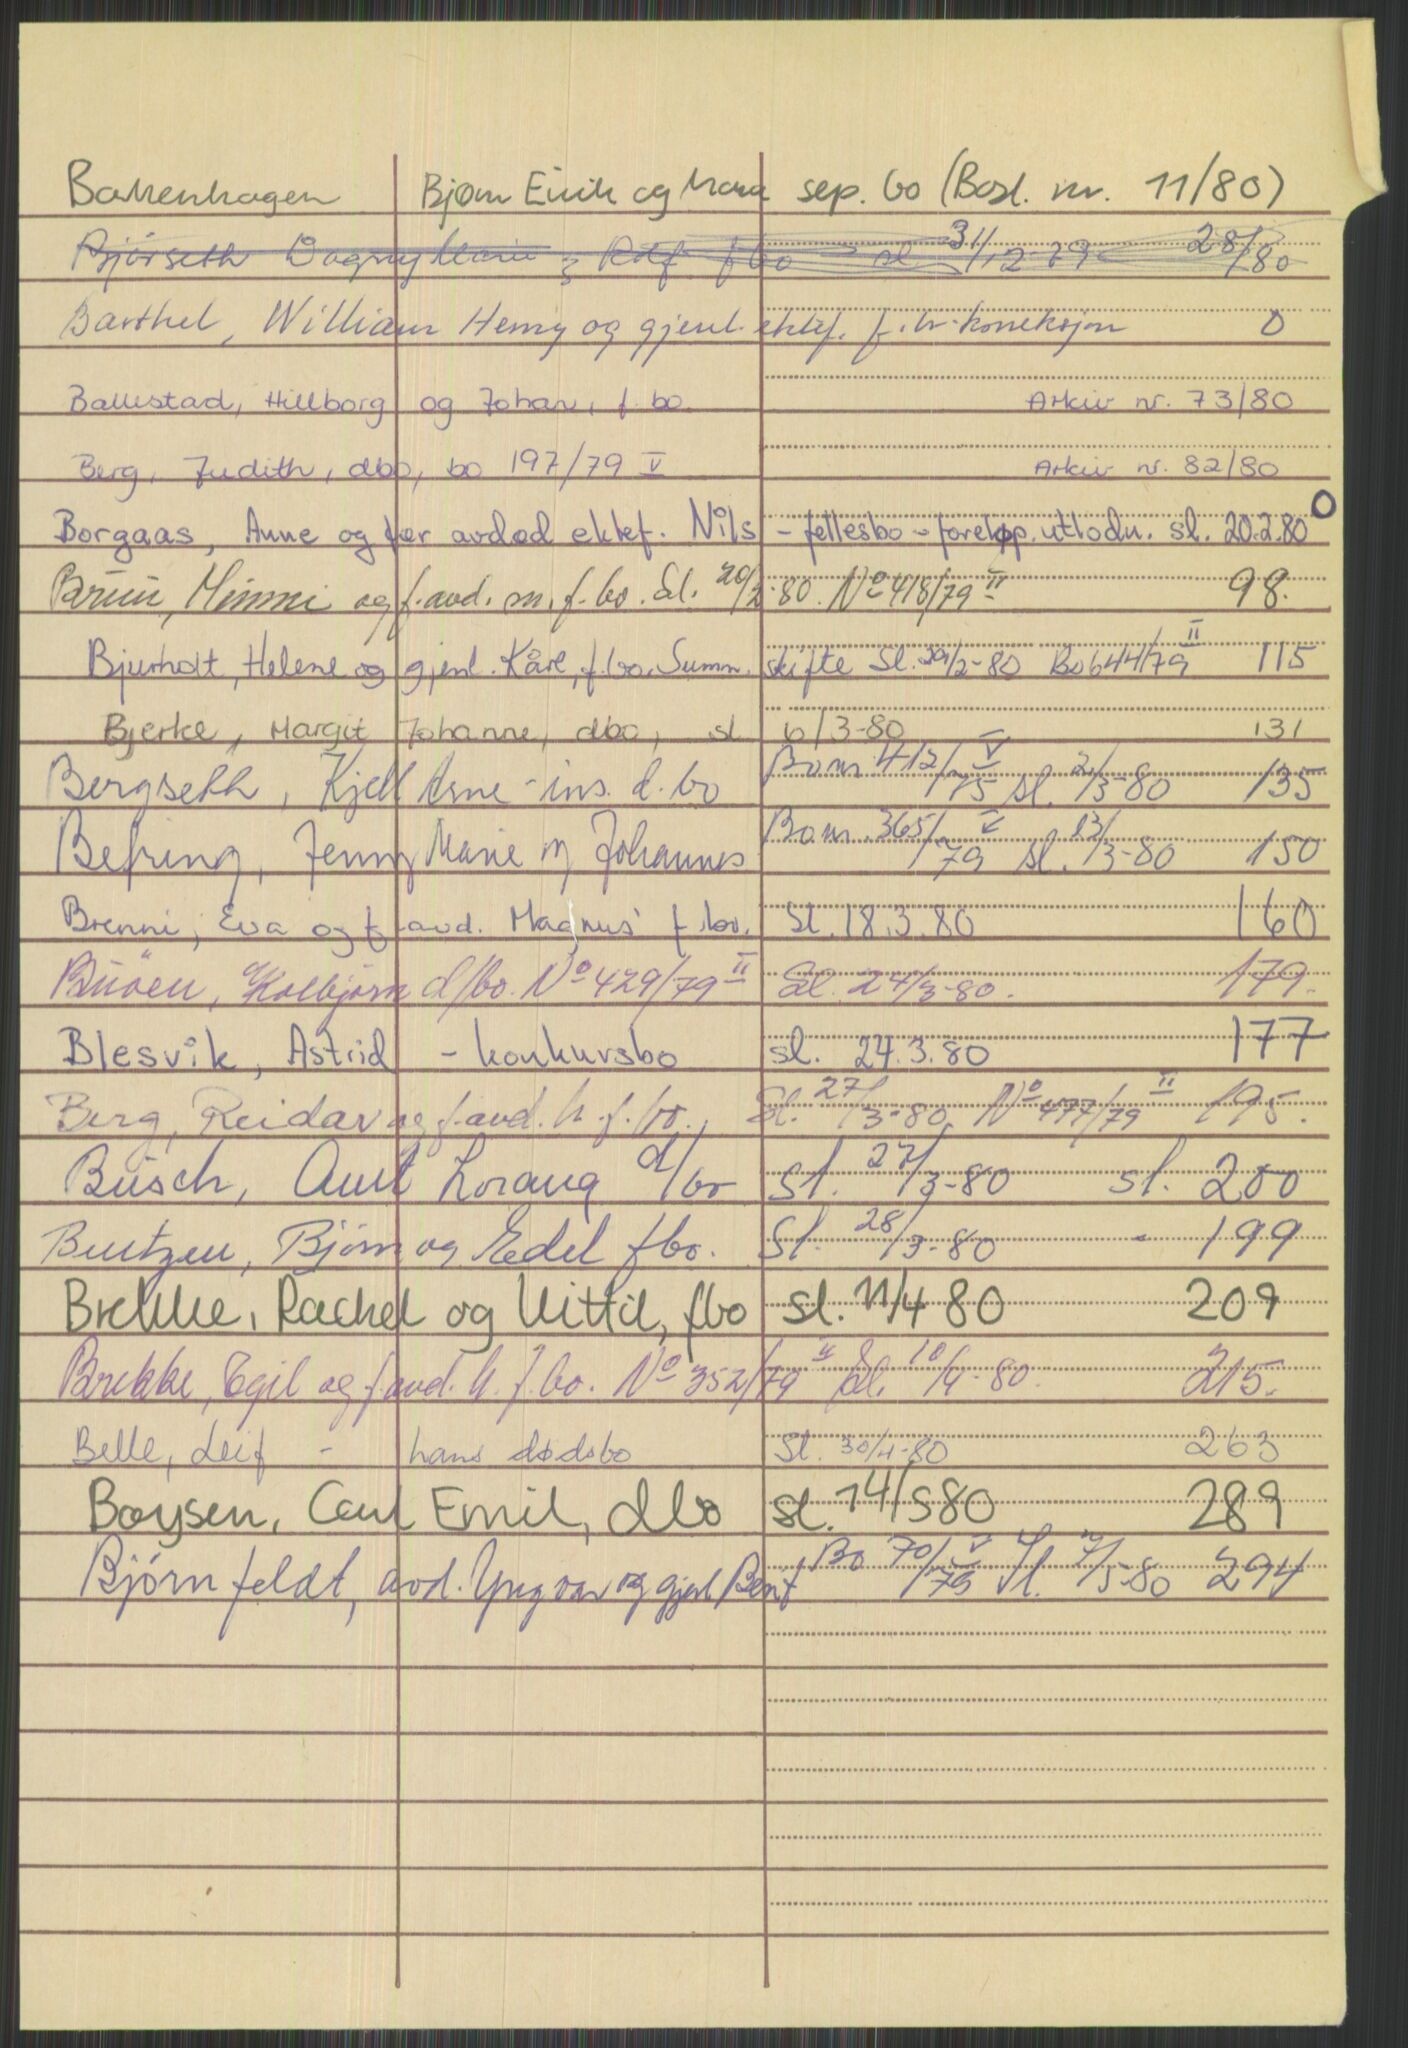 Bakkenhagen Bjørn Eirik og Mona sep. bo (Bosl. nr. 11/80)
Bjørseth Dagny Marie g Rolf fbo sl 31/12-79 28/80
Barthel, William Henry og gjenl. ektef. f. br. korreksjon 0
Ballestad, Hillborg og Johan, f. bo. Arkiv nr. 73/80
Berg, Judith, dbo, bo 197/79 V Arkiv nr. 82/80
Borgaas, Anne og før avdød ektef. Nils - fellesbo - foreløp. utlodn. sl. 20.2.80 0
Bruu, Mimmi og f. avd. m. f. bo. Sl. 20/2-80. No 418/79 II 98.
Bjurholt, Helene og gjenl. Kåre, f. bo. Summ. skifte Sl. 29/2-80 Bo 644/79 II 115
Bjerke, Margit Johanne, dbo, sl 6/3-80 131
Bergseth, Kjell Arne - ins. d. bo Bo nr. 412/75 V sl. 2/3-80 135
Befring, Jenny Marie og Johannes Bo nr. 365/79 V sl. 13/3-80 150
Brenni, Eva og f. avd. Magnus f. bo. Sl. 18.3.80 160
Buöen, Kolbjørn d/bo. No 429/79 II Sl. 24/3-80. 179.
Blesvik, Astrid - konkursbo sl. 24.3.80 177
Berg, Reidar og f. avd. h. f. bo., Sl. 27/3-80. No 477/79 II 195.
Busch, Aunt Lorang d/bo Sl. 27/3-80 sl. 200
Buntzen, Bjørn og Edel fbo. Sl. 28/3-80 - 199
Brekke, Rachel og Kittil, fbo sl. 11/4 80 209
Brekke, Egil og f. avd. h. f. bo. No 352/79 II Sl. 10/4-80. 215.
Belle, Leif - hans dødsbo Sl. 30/4-80 263
Boysen, Carl Emil, dbo sl. 14/5 80 289
Bjørnfeldt, avd. Yngvar og gjenl Berit Bo 70/79 V sl. /5-80 294